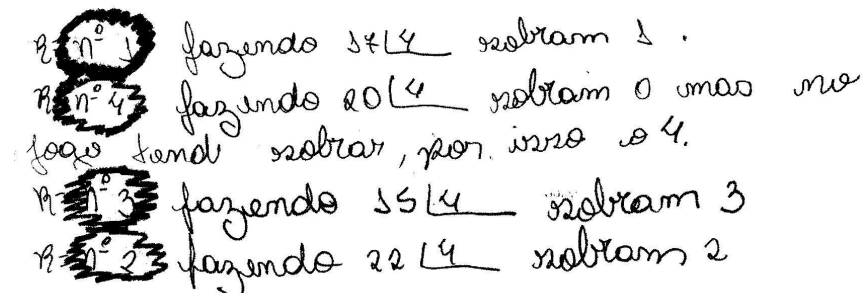 R- nº 1 fazendo 17 4 sobram 1.
R- nº 4 fazendo 20 4 sobram 0 mas no
jogo tend sobrar, por isso o 4.
R- nº 3 fazendo 15 4 sobram 3
R- nº 2 fazendo 22 4 sobram 2